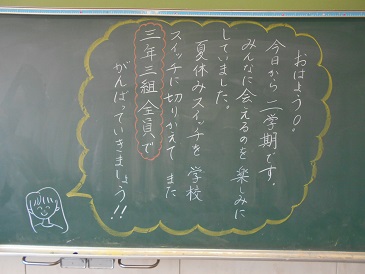 おはよう○。
今日から二学期です。
みんなに会えるのを楽しみに
していました。
夏休みスイッチを学校
スイッチに切りかえてまた
三年三組全員で
がんばっていきましょう!!